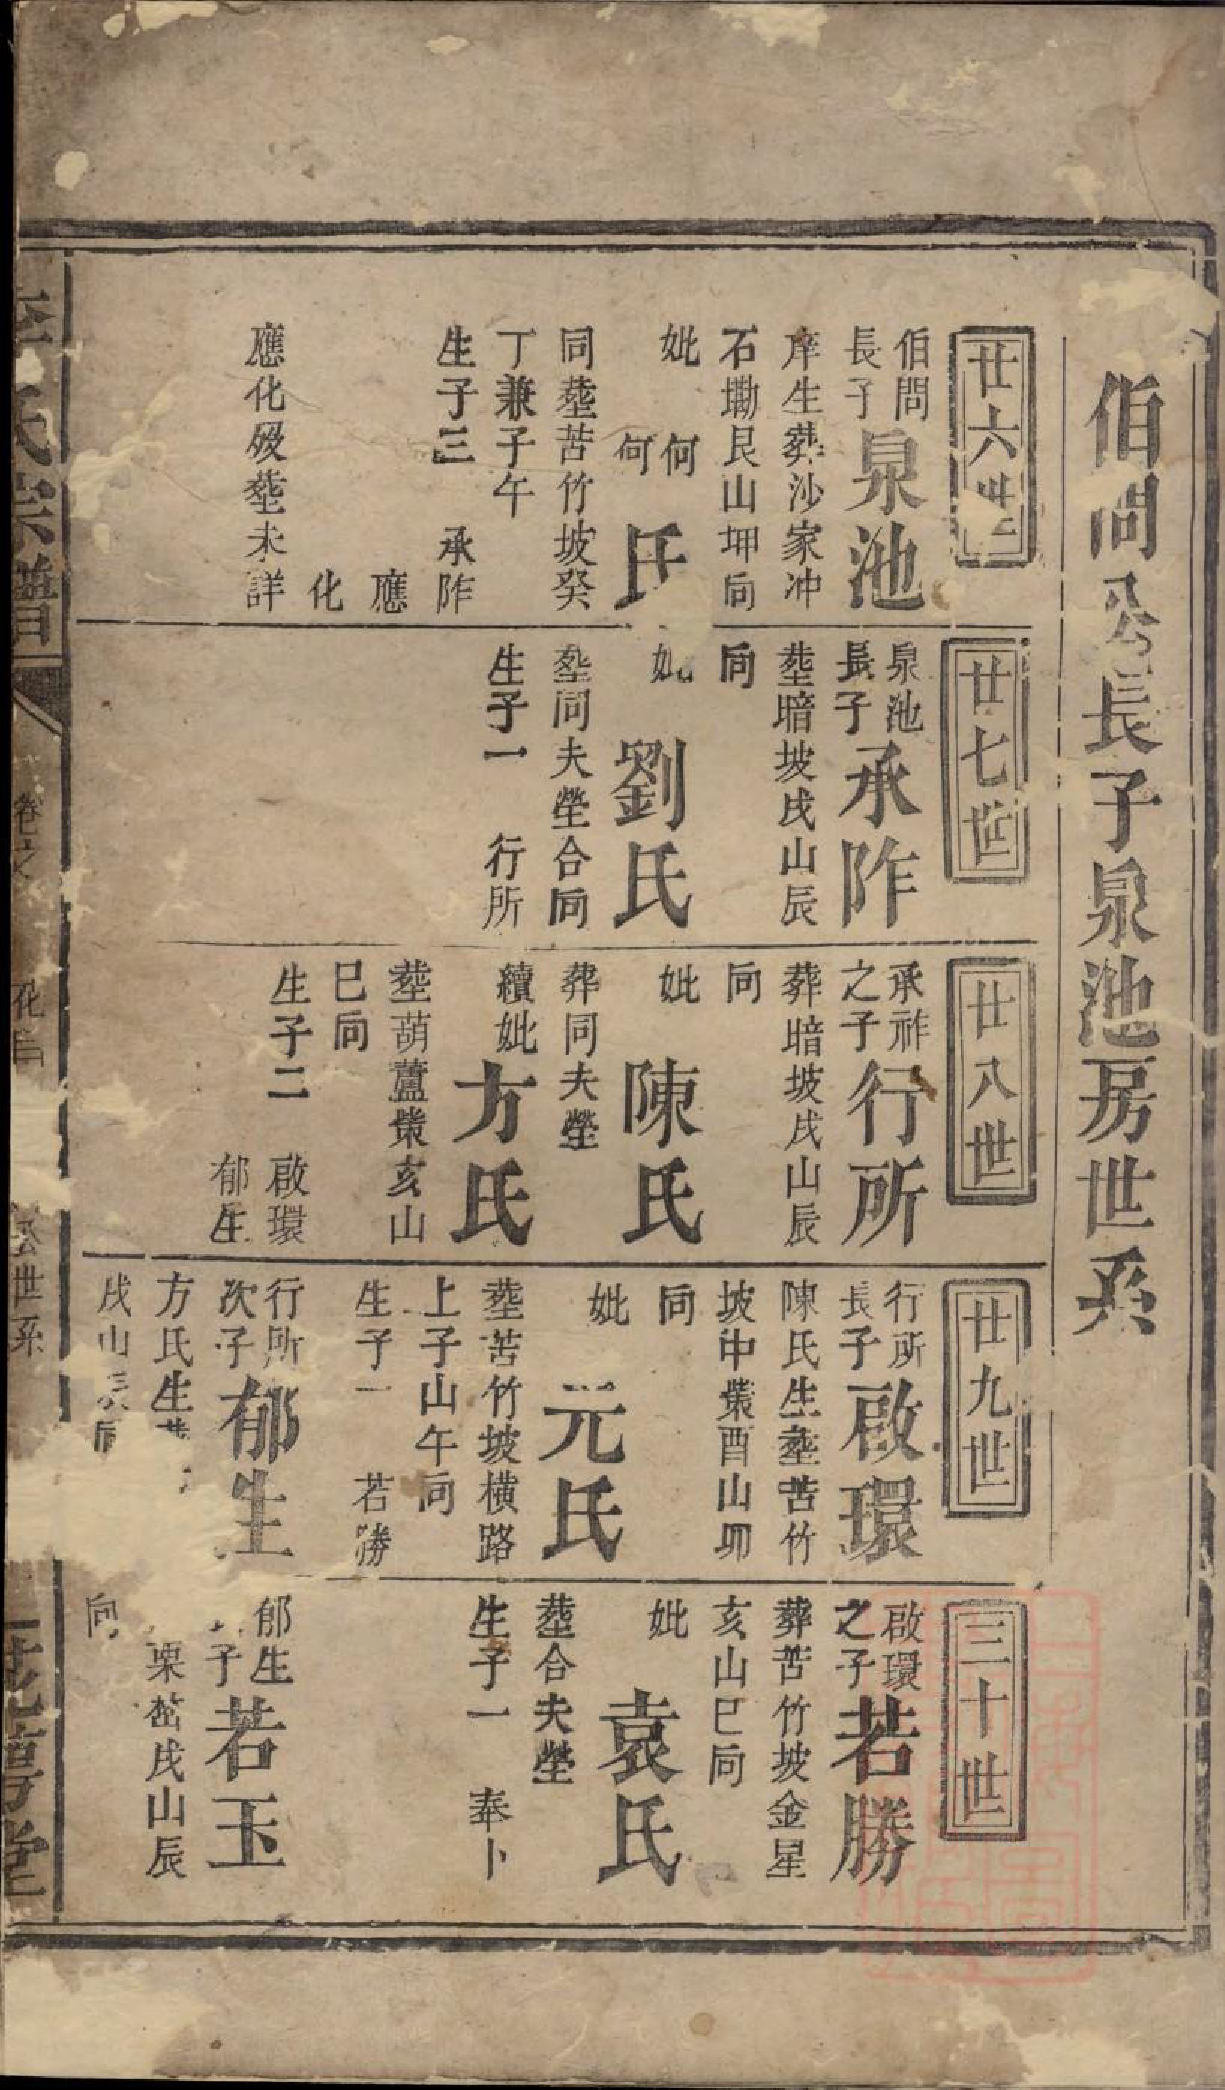 伯問公長子泉池房世系
廿六世
伯問
長子
泉池
庠生葬沙家冲
石墈艮山坤向
妣
何
何
氏
同塟苦竹坡癸
丁兼子午
生子三 承阼
應
化
應化歿塟未詳
廿七世
泉池
長子
承阼
塟暗坡戌山辰
向
妣
劉氏
塟同夫塋合向
生子一 行所
廿八世
承祚
之子
行所
葬暗坡戌山辰
向
妣
陳氏
葬同夫塋
續妣
方氏
塟葫蘆䉼亥山
巳向
生子二 啟環
郁生
廿九世
行所
長子
啟環
陳氏生塟苦竹
坡中䉼酉山卯
向
妣
元氏
塟苦竹坡橫路
上子山午向
生子一 若勝
行所
次子
郁生
方氏生
戌山辰向
三十世
啟環
之子
若勝
葬苦竹坡金星
亥山巳向
妣
袁氏
塟合夫塋
生子一 奉卜
郁生
子
若玉
栗嵤戌山辰
向
氏宗譜
公世系
堂